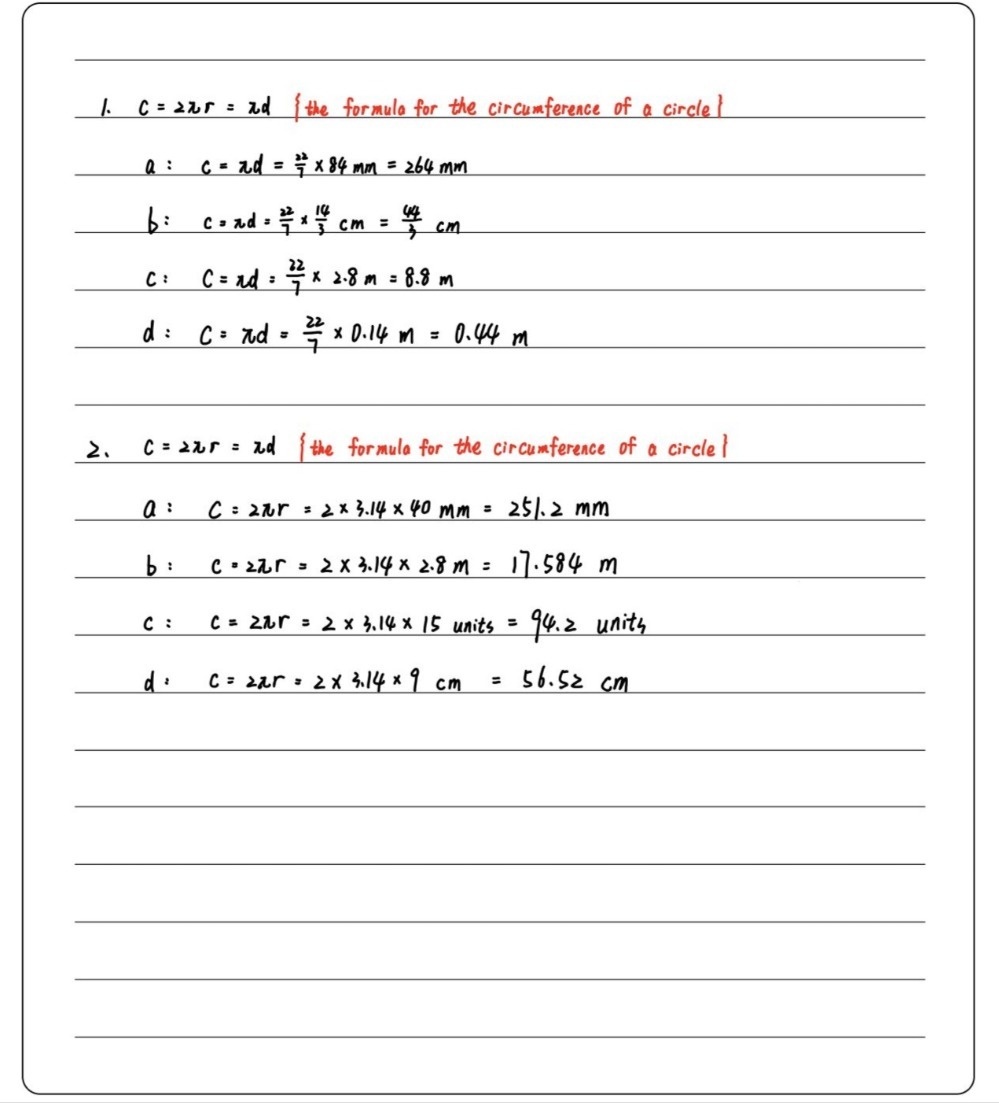 1. C = 2πr = πd {the formula for the circumference of a circle}
a: C = πd = 22/7 × 84 mm = 264 mm
b: C = πd = 22/7 × 14/3 cm = 44/3 cm
c: C = πd = 22/7 × 2.8 m = 8.8 m
d: C = πd = 22/7 × 0.14 m = 0.44 m
2. C = 2πr = πd {the formula for the circumference of a circle}
a: C = 2πr = 2 × 3.14 × 40 mm = 251.2 mm
b: C = 2πr = 2 × 3.14 × 2.8 m = 17.584 m
c: C = 2πr = 2 × 3.14 × 15 units = 94.2 units
d: C = 2πr = 2 × 3.14 × 9 cm = 56.52 cm